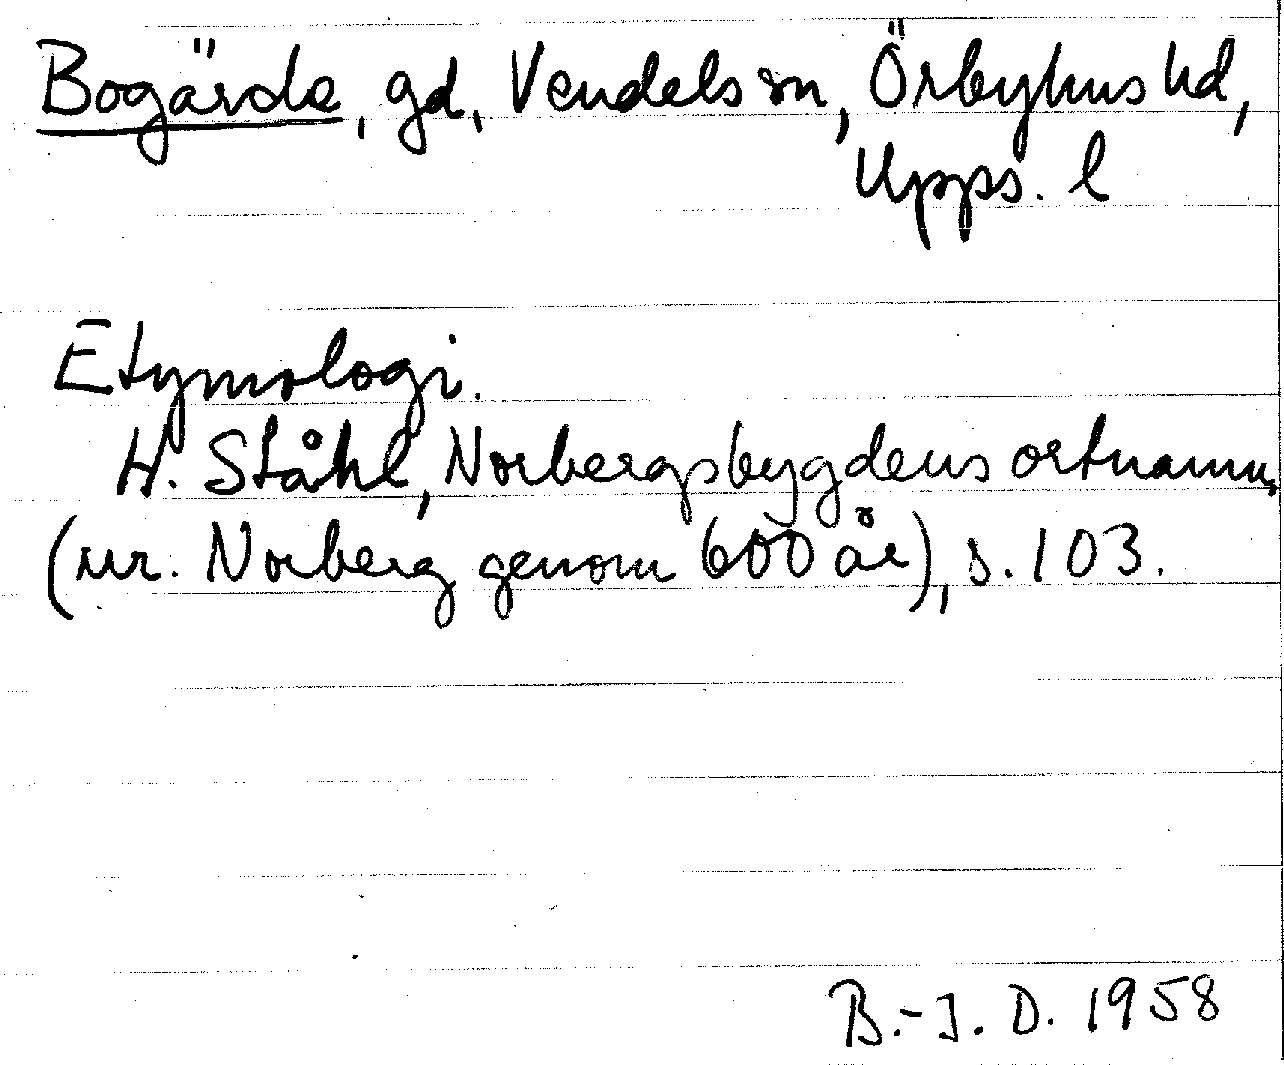 Bogärde, gd, Vendels sn, Örbyhus hd,
Upps. l
Etymologi.
H. Ståhl, Norbergsbygdens ortnamn,
(ur. Norberg genom 600 år), s. 103.
B.-J. D. 1958